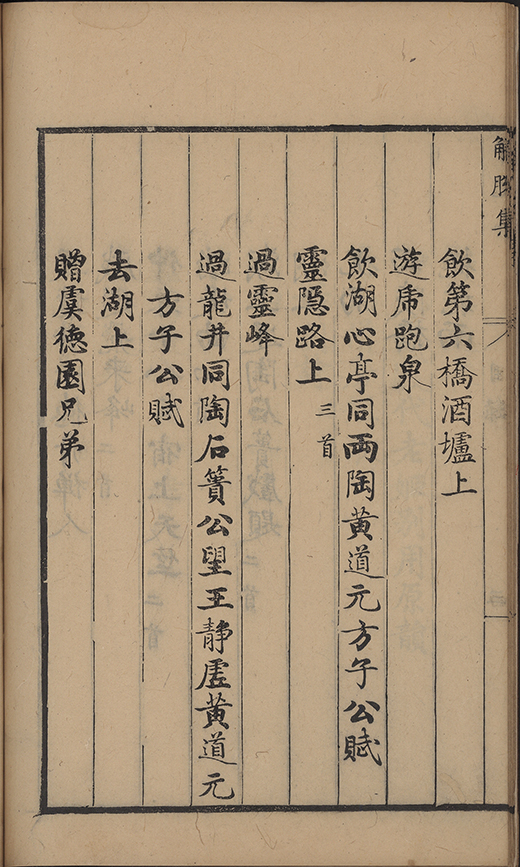 解脫集
飲第六橋酒壚上
遊虎跑泉
飲湖心亭同兩陶黃道元方子公賦
靈隱路上 三首
過靈峰
過龍井同陶石簣公望王靜虛黃道元
方子公賦
去湖上
贈虞德園兄弟